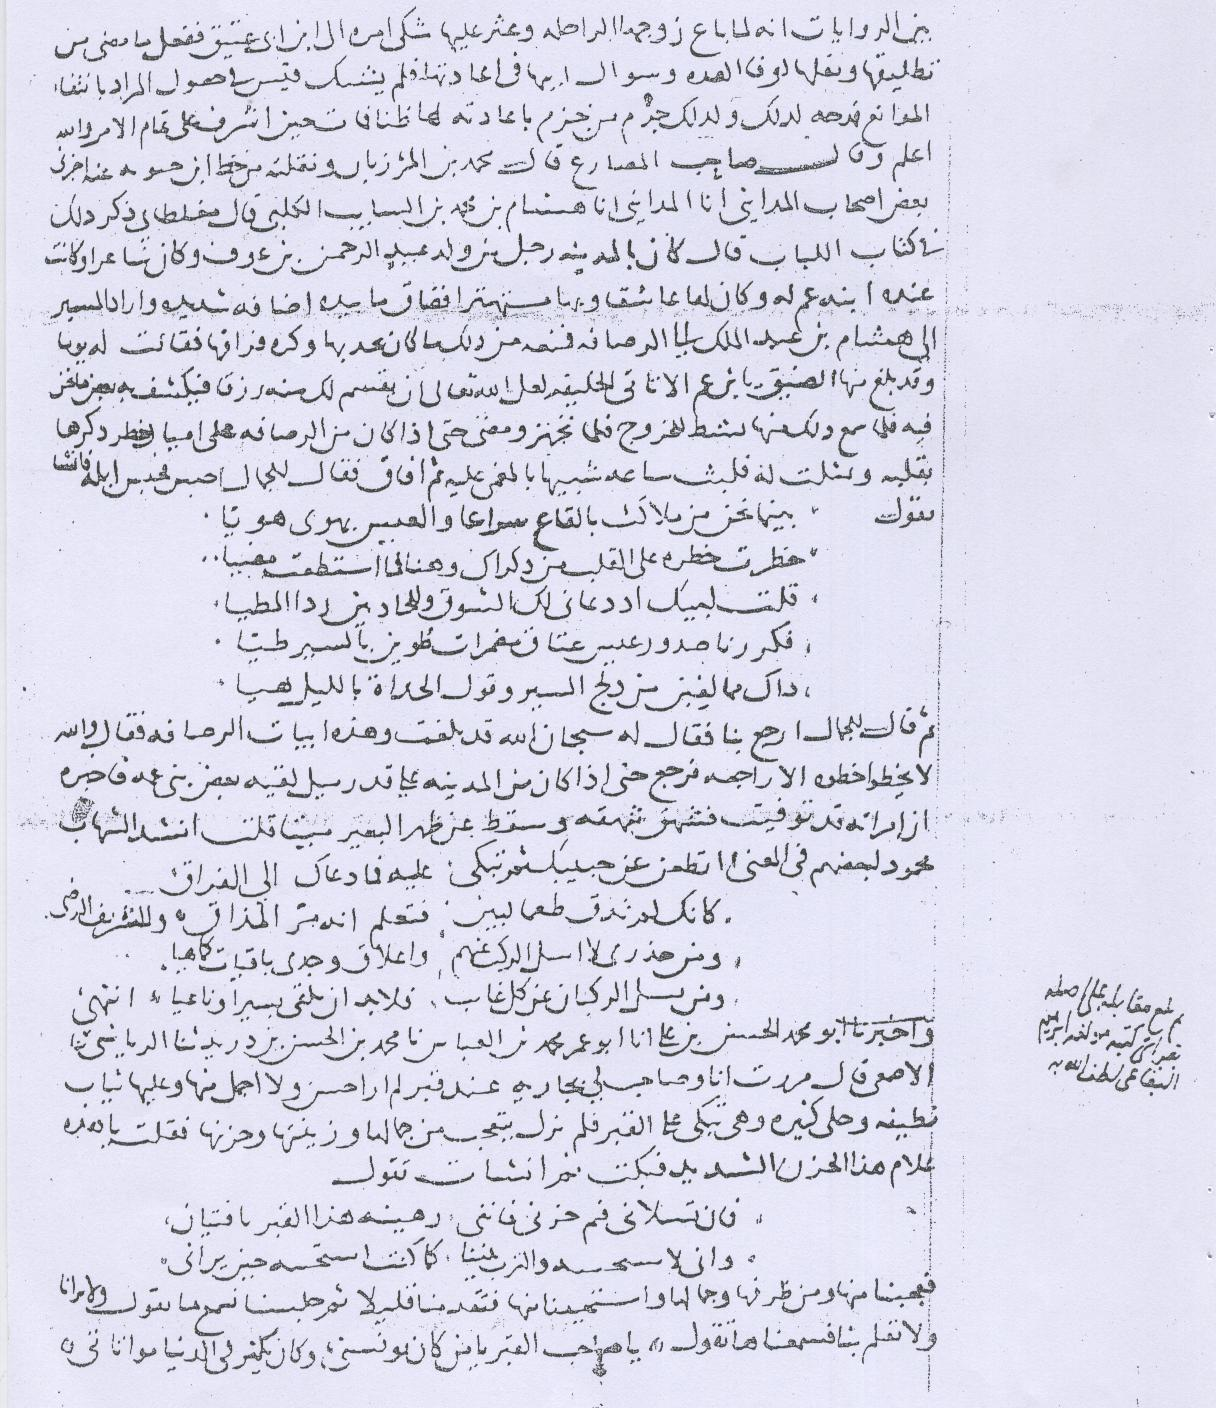 بين الروايات انه لما باع زوجها الراحله وعثر عليها شكى امره الى ابن ابى عتيق ففعل ما مضى من
تطليقها ونقلها لوفا العده وسوال ابيها فى اعادتها فلم يشك قيس فى حصول المراد بانتفا
الموانع فمدحه لذلك ولذلك جزم من جزم باعادته لها ظنا فا تحين اشرف على تمام الامر والله
اعلم وقال صاحب المصارع قال محمد بن المرزبان ونقلته من خط ابن حيويه عنه اخبرنى
بعض اصحاب المداينى انا المداينى انا هشام بن محمد بن السايب الكلبى قال مغلطاى ذكر ذلك
فى كتاب اللباب قال كان بالمدينه رجل من ولد عبد الرحمن بن عوف وكان شاعرا وكانت
عنده ابنه عم له وكان لها عاشقا وبها مستهترا فضاق ما بيده اضاقه شديده واراد المسير
الى هشام بن عبد الملك الى الرصافه فمنعه من ذلك ما كان يجد بها وكره فراقها فقالت له يوما
وقد بلغ منها الضيق يا بن عم الا تاتى الخليفه لعل الله تعالى ان يقسم لك منه رزقا فيكشف به بعض ما نحن
فيه فلما سمع ذلك منها نشط للخروج فلما تجهز ومضى حتى اذا كان من الرصافه على اميال خطر ذكرها
بقلبه ومثلت له فلبث ساعه شبيها بالمغمى عليه ثم افاق فقال للجمال احبس فحبس ابله فانشا
يقول بينما نحن من بلاكث بالقاع سراعا والعيس تهوى هويا
خطرت خطره على القلب من ذكراك وهنا فما استطعت مضيا
قلت لبيك اذ دعانى لك الشوق وللحاديين ردا المطيا
فكررنا صدور عيس عتاق مضمرات طوين بالسير طيا
ذاك مما لقين من دلج السير وقول الحداة بالليل هيا
ثم قال للجمال ارجع بنا فقال له سبحان الله قد بلغت وهذه ابيات الرصافه فقال والله
لا تخطوا خطوه الا راجعه فرجع حتى اذا كان من المدينه على قدر ميل لقيه بعض بنى عمه فاخبره
ان امراته قد توفيت فشهق شهقه وسقط عن ظهر البعير ميتا قلت انشد الشهاب
محمود لبعضهم فى المعنى اتظعن عن حبيبك ثم تبكى عليه فما دعاك الى الفراق
كانك لم تذق طعما لبين فتعلم انه مر المذاق وللشريف الرضى
ومن حذرى لا اسل الركب عنهم واعلاق وجدى باقيات كما هيا
ومن يسل الركبان عن كل غايب فلا بد ان يلقى بشيرا وناعيا انتهى
واخبرنا ابو محمد الحسن بن على انا ابو عمر محمد بن العباس نا محمد بن الحسن بن دريد ثنا الرياشى ثنا
الاصمعى قال مررت انا وصاحب لى بجاريه عند قبر لم ار احسن ولا اجمل منها وعليها ثياب
نظيفه وحلى كثيره وهى تبكى على القبر فلم نزل نتعجب من جمالها وزينتها وحزنها فقلت يا هذه
علام هذا الحزن الشديد فبكت ثم انشات تقول
فان تسلانى فيم حزنى فاننى رهينه هذا القبر يا فتيان
وانى لا ستحييه والترب بيننا كما كنت استحييه حين يرانى
فعجبنا منها ومن ظرفها وجمالها واستحيينا منها فتقدمنا قليلا ثم جلسنا نسمع ما تقول ولا ترانا
ولا تعلم بنا فسمعناها تقول يا صاحب القبر يا من كان يونسنى وكان يكثر فى الدنيا مواتاتى
بلغ مقابله على اصله
كتبه مولفه ابرهيم
البقاعى لطف الله به